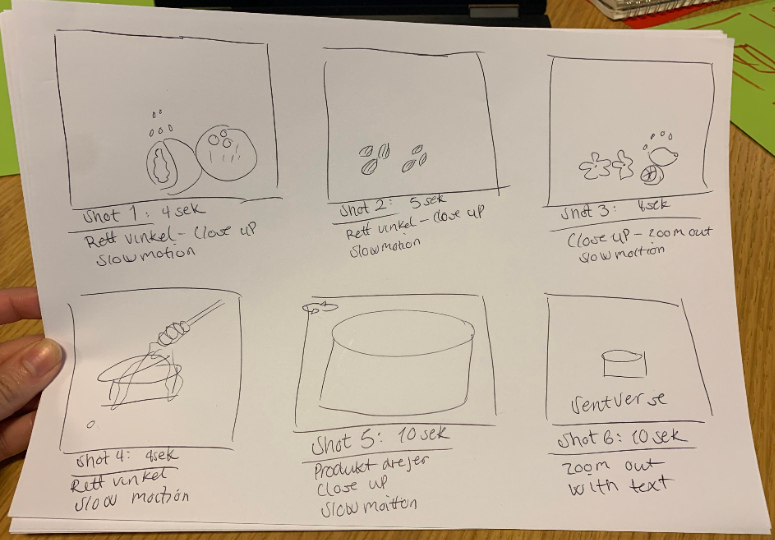 Shot 1: 4 sek
Rett vinkel - Close up
Slowmotion
Shot 2: 5 sek
Rett vinkel - Close up
Slowmotion
Shot 3: 4sek
Close up - zoom out
Slow moction
Shot 4: 4sek
Rett vinkel
Slow moction
Shot 5: 10 sek
Produkt drejer
Close up
Slow moition
Sentverse
Shot 6: 10 sek
Zoom out
with text